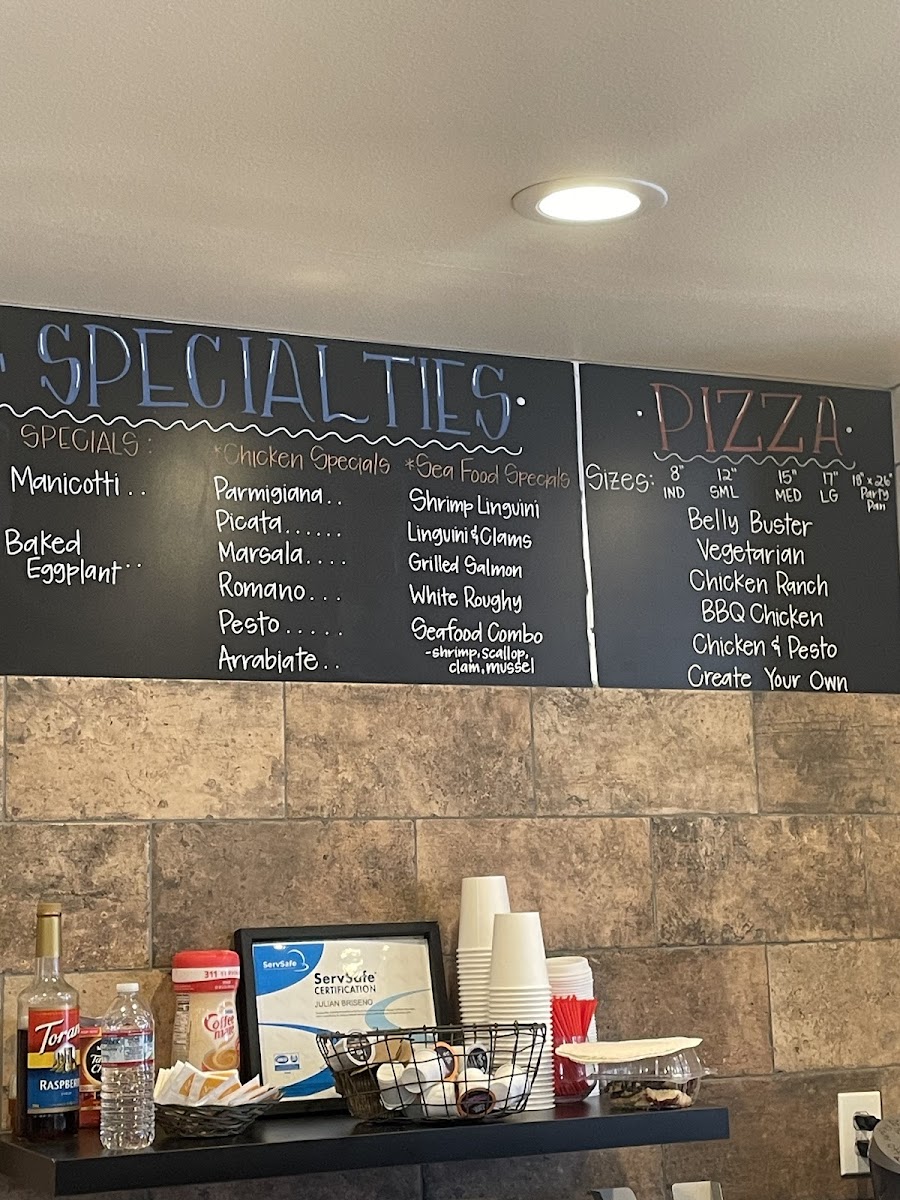 SPECIALTIES
SPECIALS:
Manicotti . .
Baked
Eggplant . .
*Chicken Specials
Parmigiana . .
Picata . . . . . .
Marsala . . . .
Romano . . .
Pesto . . . . . .
Arrabiate . .
*Sea Food Specials
Shrimp Linguini
Linguini & Clams
Grilled Salmon
White Roughy
Seafood Combo
-shrimp, scallop,
clam, mussel
PIZZA
Sizes: 8" 12" 15" 17" 18" x 26"
IND SML MED LG Party
Pan
Belly Buster
Vegetarian
Chicken Ranch
BBQ Chicken
Chicken & Pesto
Create Your Own
311
Coffee
mate
ServSafe
ServSafe
CERTIFICATION
JULIAN BRISENO
Toran
RASPBE